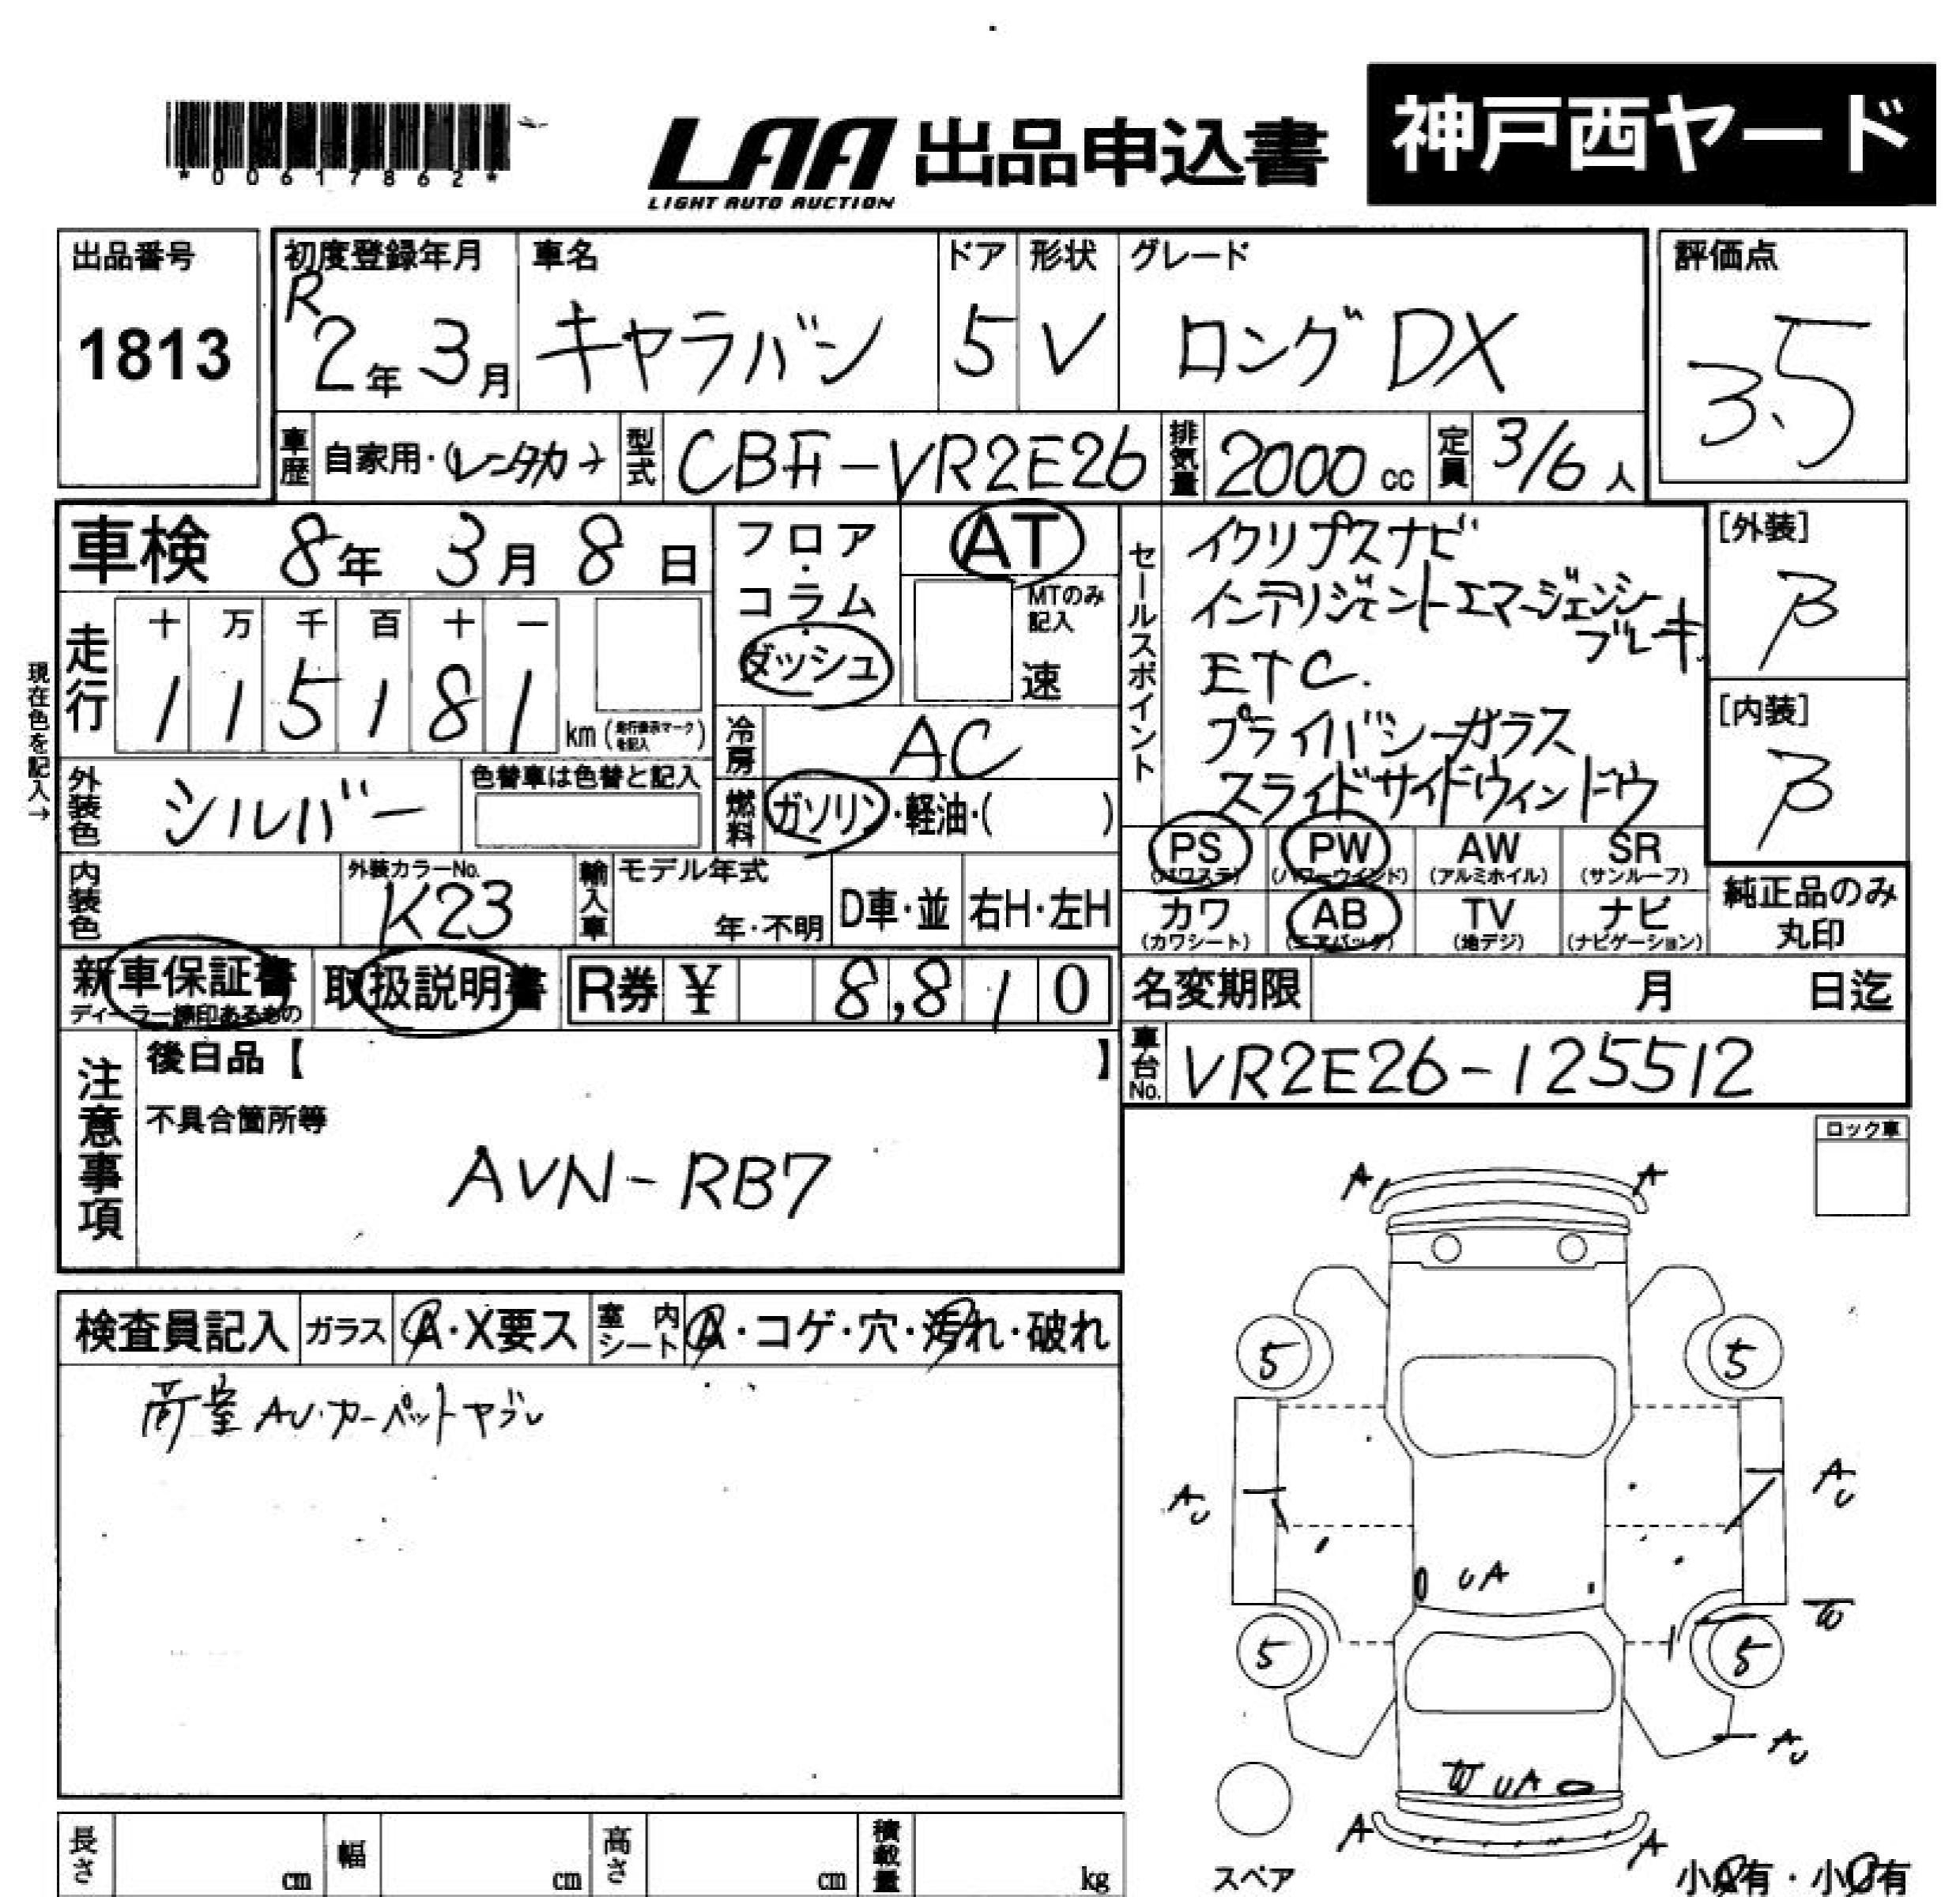 *00617862*
LAA 出品申込書
LIGHT AUTO AUCTION
神戸西ヤード
出品番号
1813
初度登録年月
R2年3月
車名
キャラバン
ドア
5
形状
V
グレード
ロングDX
評価点
3.5
車歴 自家用・(レンタカー
型式 CBF-VR2E26
排気量 2000 cc
定員 3/6 人
車検 8年 3月 8日
フロア・コラム・ダッシュ
AT
MTのみ記入
速
走行
十 万 千 百 十 一
1 1 5 1 8 1 km
(走行表示マークを記入)
現在色を記入→
冷房 AC
外装色 シルバー
色替車は色替と記入
燃料 ガソリン・軽油・( )
セールスポイント
イクリプスナビ
インテリジェントエマージェンシー
ブレーキ
ETC.
プライバシーガラス
スライドサイドウィンドウ
[外装]
β
[内装]
β
PS (パワステ)
PW (パワーウインド)
AW (アルミホイル)
SR (サンルーフ)
カワ (カワシート)
AB (エアバッグ)
TV (地デジ)
ナビ (ナビゲーション)
純正品のみ
丸印
内装色
外装カラーNo.
K23
輸入車
モデル年式
年・不明
D車・並
右H・左H
新車保証書
ディーラー捺印あるもの
取扱説明書
R券 ¥ 8,810
名変期限 月 日迄
車台No. VR2E26-125512
注意事項
後日品【 】
不具合箇所等
AVN-RB7
ロック車
検査員記入
ガラス A・X要ス
室内シート A・コゲ・穴・汚れ・破れ
荷室AU・カーペットヤブレ
A A
5 5
AU AU
UA
W
5 5
AU
W UA
A A
スペア
小A有・小U有
長さ cm
幅 cm
高さ cm
積載量 kg